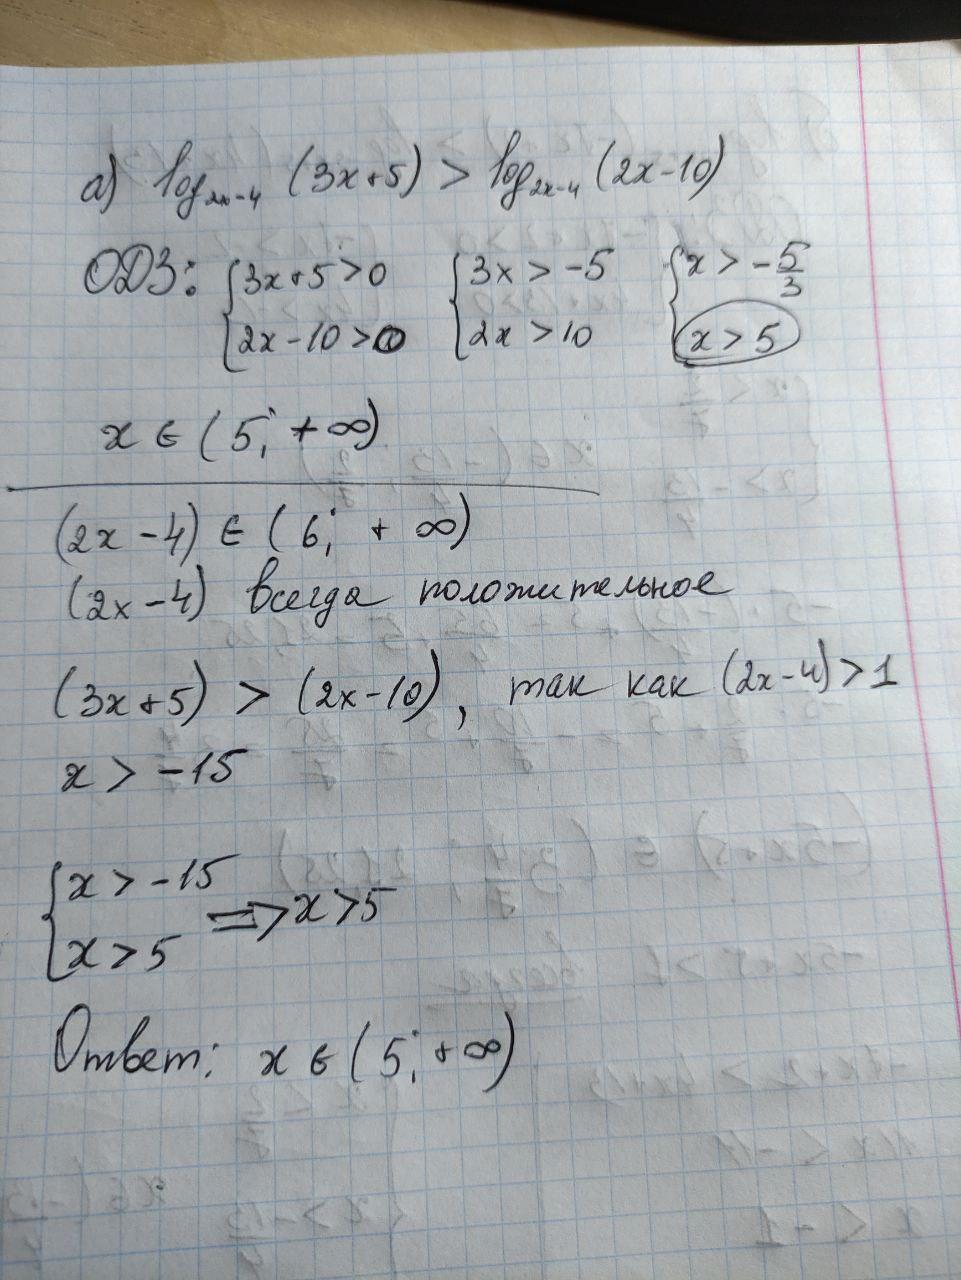 а) log₂ₓ₋₄ (3x+5) > log₂ₓ₋₄ (2x-10)
ОДЗ: { 3x+5>0 { 3x > -5 { x > -5/3
{ 2x-10>0 { 2x > 10 { x > 5
x ∈ (5; +∞)
(2x-4) ∈ (6; +∞)
(2x-4) всегда положительное
(3x+5) > (2x-10), так как (2x-4)>1
x > -15
{ x > -15
{ x > 5 => x>5
Ответ: x ∈ (5; +∞)